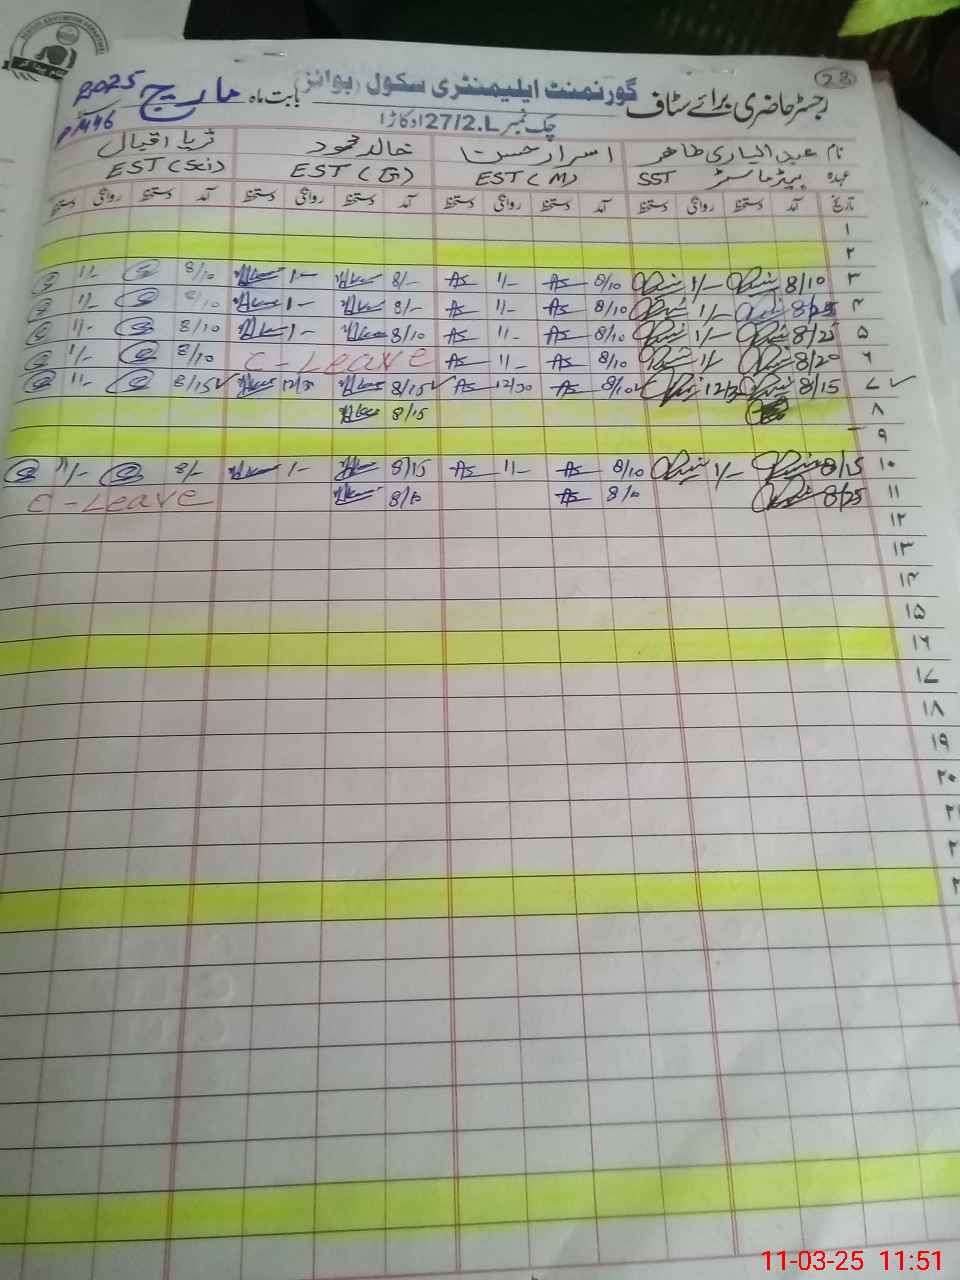 23
رجسٹر حاضری برائے سٹاف گورنمنٹ ایلیمنٹری سکول (بوائز) بابت ماہ مارچ 2025
چک نمبر 27/2.L اوکاڑا
نام عبدالباری طاہر اسرار حسن خالد محمود ثریا اقبال
عہدہ ہیڈ ماسٹر SST EST (M) EST (G) EST (Sci)
تاریخ آمد دستخط روانگی دستخط آمد دستخط روانگی دستخط آمد دستخط روانگی دستخط آمد دستخط روانگی دستخط
۱
۲
۳ 8/10 1/- 8/10 As 1/- As 8/- 1- 8/10 1/-
۴ 8/25 1/- 8/10 As 1/- As 8/- 1- 8/10 1/-
۵ 8/25 1/- 8/10 As 1/- As 8/10 1- 8/10 1/-
۶ 8/20 1/- 8/10 As 1/- As C-Leave 8/10 1/-
۷ 8/15 12/30 8/10 As 12/30 As 8/15 12/30 8/15 1/-
۸ 8/15
۹
۱۰ 8/15 1/- 8/10 As 1/- As 8/15 1- 8/- 1/-
۱۱ 8/25 8/10 As 8/10 C-Leave
۱۲
۱۳
۱۴
۱۵
۱۶
۱۷
۱۸
۱۹
۲۰
11-03-25 11:51